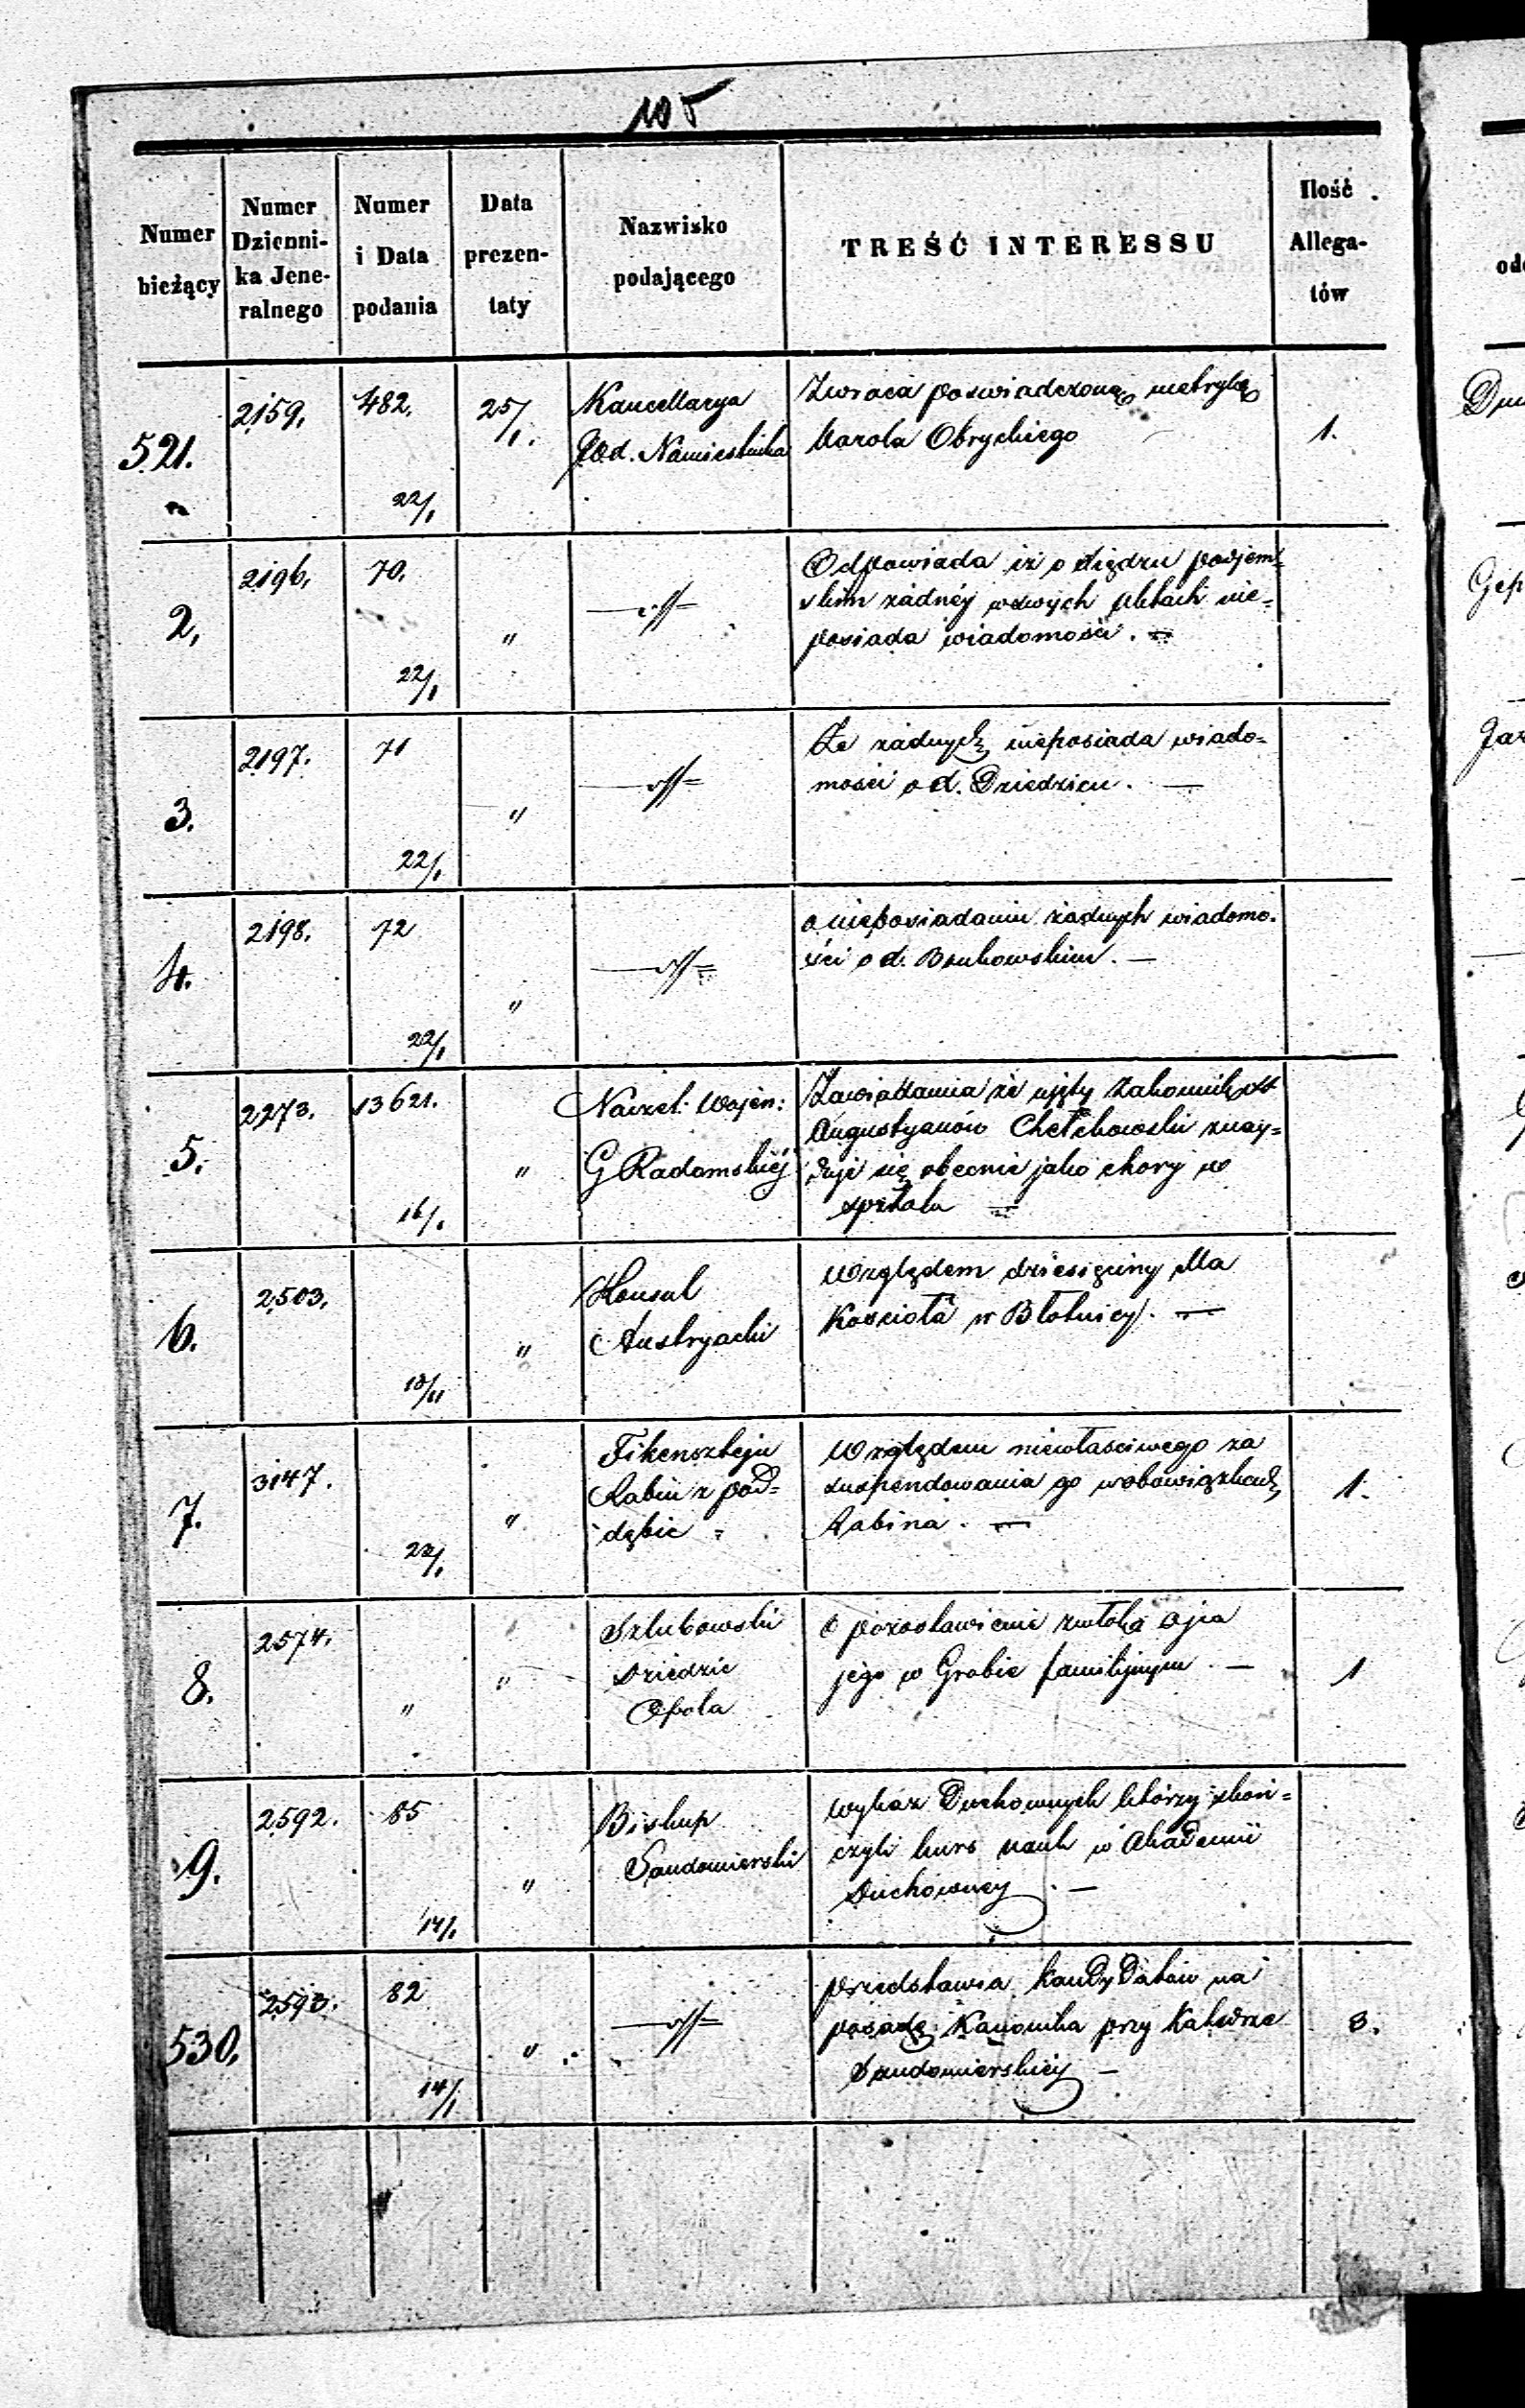 105
Numer bieżący | Numer Dziennika Jeneralnego | Numer i Data podania | Data prezentaty | Nazwisko podającego | TREŚĆ INTERESSU | Ilość Allegatów
521. 2159. 482. 25/1. Kancellarya Zwraca poświadczoną metrykę
Namiestnika Karola Obryckiego 1.
22/1
2, 2196, 70. Odpowiada iż o Xiędzu
żadnéj w swych aktach nie=
" posiada wiadomości. —
22/1
3. 2197. 71 Że żadnych nieposiada wiado=
" mości o X. Dziedzicu. —
22/1
4. 2198. 72 o nieposiadaniu żadnych wiadomo.
" ści o X. —
22/1
5. 2273. 13621. Naczel: Wojen: Zawiadamia że ujęty Zakonnik XX
Augustyanów Chełchowski znay=
" G Radomskiéj duje się obecnie jako chory w
16/1. szpitalu —
6. 2503. Konsul Względem dziesięciny dla
" Austryacki Kościoła w Błotnicy. —
10/11
7. 3147. Fikensztejn Względem niewłaściwego za
Rabin z Pod= suspendowania go w obowiązkach 1.
" dębic Rabina. —
22/1
8. 2574. Szlubowski O pozostawienie zwłok ojca
" Dziedzic jego w Grobie familijnym. — 1
" Opola
9. 2592. 85 Biskup Wykaz Duchownych którzy skoń=
Sandomierski czyli kurs nauk w Akademii
" Duchowney. —
14/1
530. 2593. 82 przedstawia Kandydatów na
" posadę Kanonika przy Katedrze 3.
14/1 Sandomierskiéj —